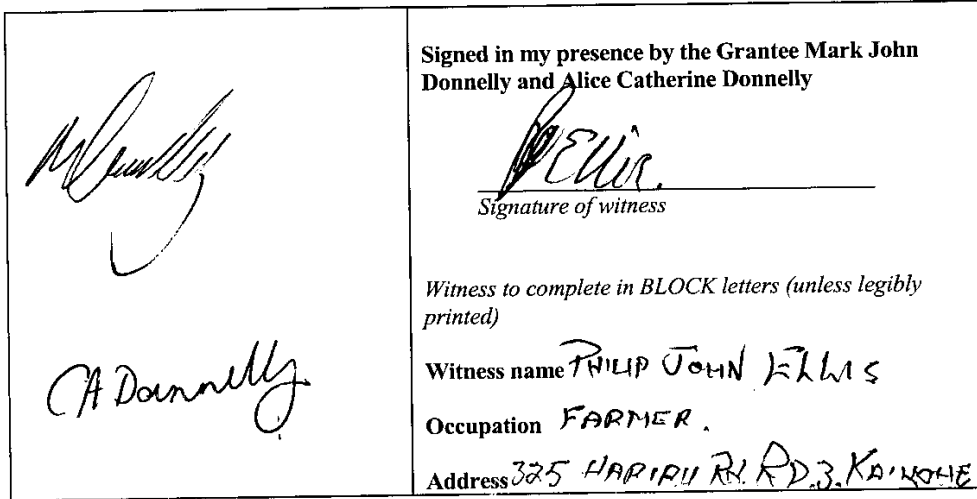 M Donnelly
CA Donnelly
Signed in my presence by the Grantee Mark John
Donnelly and Alice Catherine Donnelly
PJ Ellis.
Signature of witness
Witness to complete in BLOCK letters (unless legibly
printed)
Witness name PHILIP JOHN ELLIS
Occupation FARMER.
Address 325 RD. RD.3.